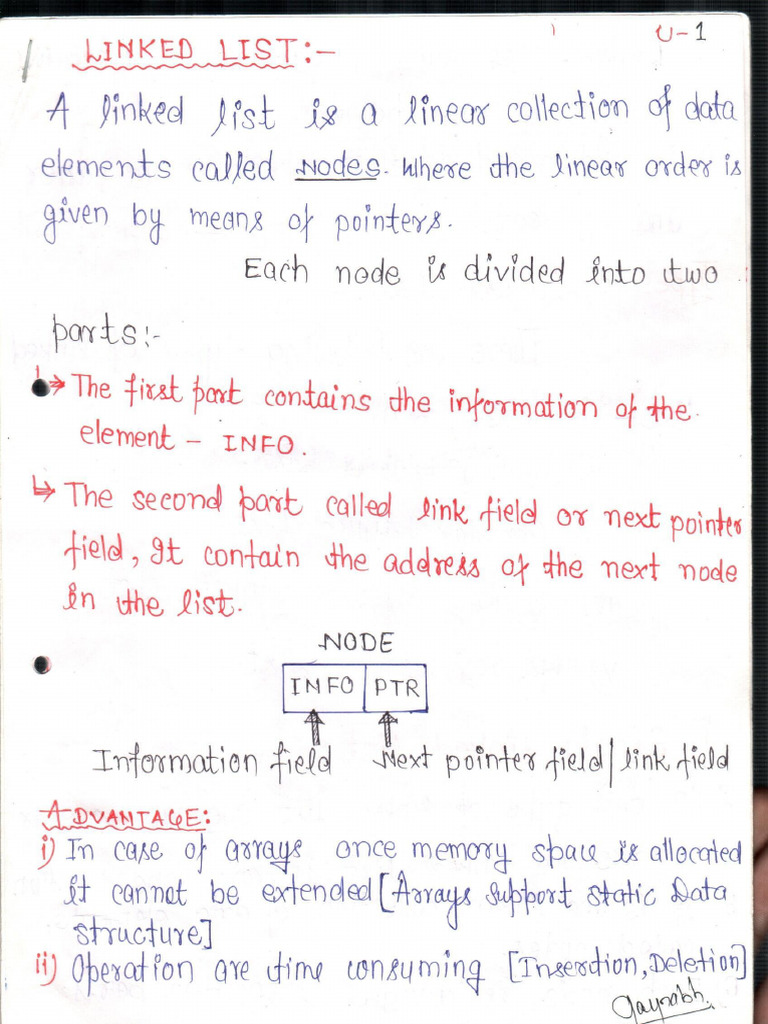 U-1
LINKED LIST:-
A linked list is a linear collection of data
elements called NODES. Where the linear order is
given by means of pointers.
Each node is divided into two
parts:-
↳ The first part contains the information of the
element - INFO.
↳ The second part called link field or next pointer
field, It contain the address of the next node
in the list.
NODE
INFO PTR
Information field Next pointer field/link field
ADVANTAGE:
i) In case of arrays once memory space is allocated
it cannot be extended [Arrays support static Data
structure]
ii) Operation are time consuming [Insertion, Deletion]